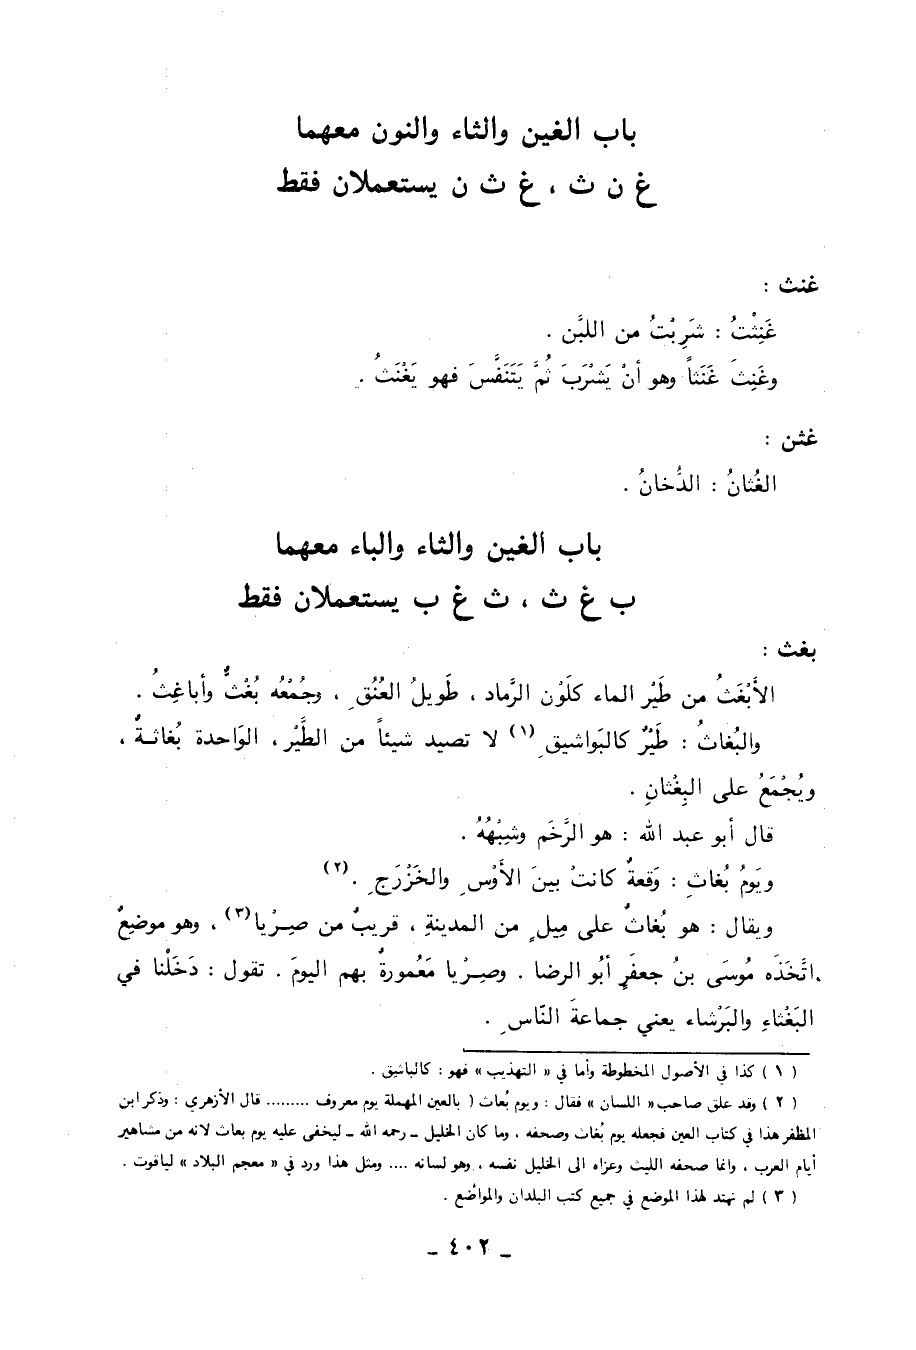 باب الغين والثاء والنون معهما
غ ن ث ، غ ث ن يستعملان فقط
غنث :
غَنِثْتُ : شَرِبْتُ من اللبَّن .
وغَنِثَ غَنَثاً وهو أنْ يَشْرَبَ ثُمَّ يَتَنَفَّسَ فهو يَغْنَثُ .
غثن :
الغُثانُ : الدُّخانُ .
باب الغين والثاء والباء معهما
ب غ ث ، ث غ ب يستعملان فقط
بغث :
الأَبْغَثُ من طَيْر الماء كلَوْن الرَّماد ، طَويلُ العُنُقِ ، وجُمْعُه بُغْثٌ وأباغِثُ .
والبُغاثُ : طَيْرٌ كالبَواشيقِ (١) لا تصيد شيئاً من الطَّيْر ، الوَاحدة بُغاثـةٌ ،
ويُجْمَعُ على البِغْثانِ .
قال أبو عبد الله : هو الرَّخَم وشِبْهُهُ .
ويَومُ بُغاثِ : وَقعةٌ كانتْ بينَ الأَوْسِ والخَزْرَجِ .(٢)
ويقال : هو بُغاثٌ على مِيلٍ من المدينةِ ، قريبٌ من صِـرْيا(٣) ، وهو موضِعٌ
اتَّخَذَه مُوسَى بنُ جعفَرٍ أبُو الرضا . وصِـرْيا مَعْمورةٌ بهم اليومَ . تقول : دَخَلْنا في
البَغْثاءِ والبَرْشاء يعني جماعةَ النّاسِ .
( ١ ) كذا في الأصول المخطوطة وأما في « التهذيب » فهو : كالباشيق .
( ٢ ) وقد علق صاحب « اللسان » فقال : ويوم بُعاث ( بالعين المهملة يوم معروف ......... قال الأزهري : وذكر ابن
المظفر هذا في كتاب العين فجعله يوم بُغاث وصحفه ، وما كان الخليل ـ رحمه الله ـ ليخفى عليه يوم بعاث لانه من مشاهير
أيام العرب ، وانما صحفه الليث وعزاه الى الخليل نفسه ، وهو لسانه .... ومثل هذا ورد في « معجم البلاد » لياقوت .
( ٣ ) لم نهتد لهذا الموضع في جميع كتب البلدان والمواضع .
ـ ٤٠٢ ـ